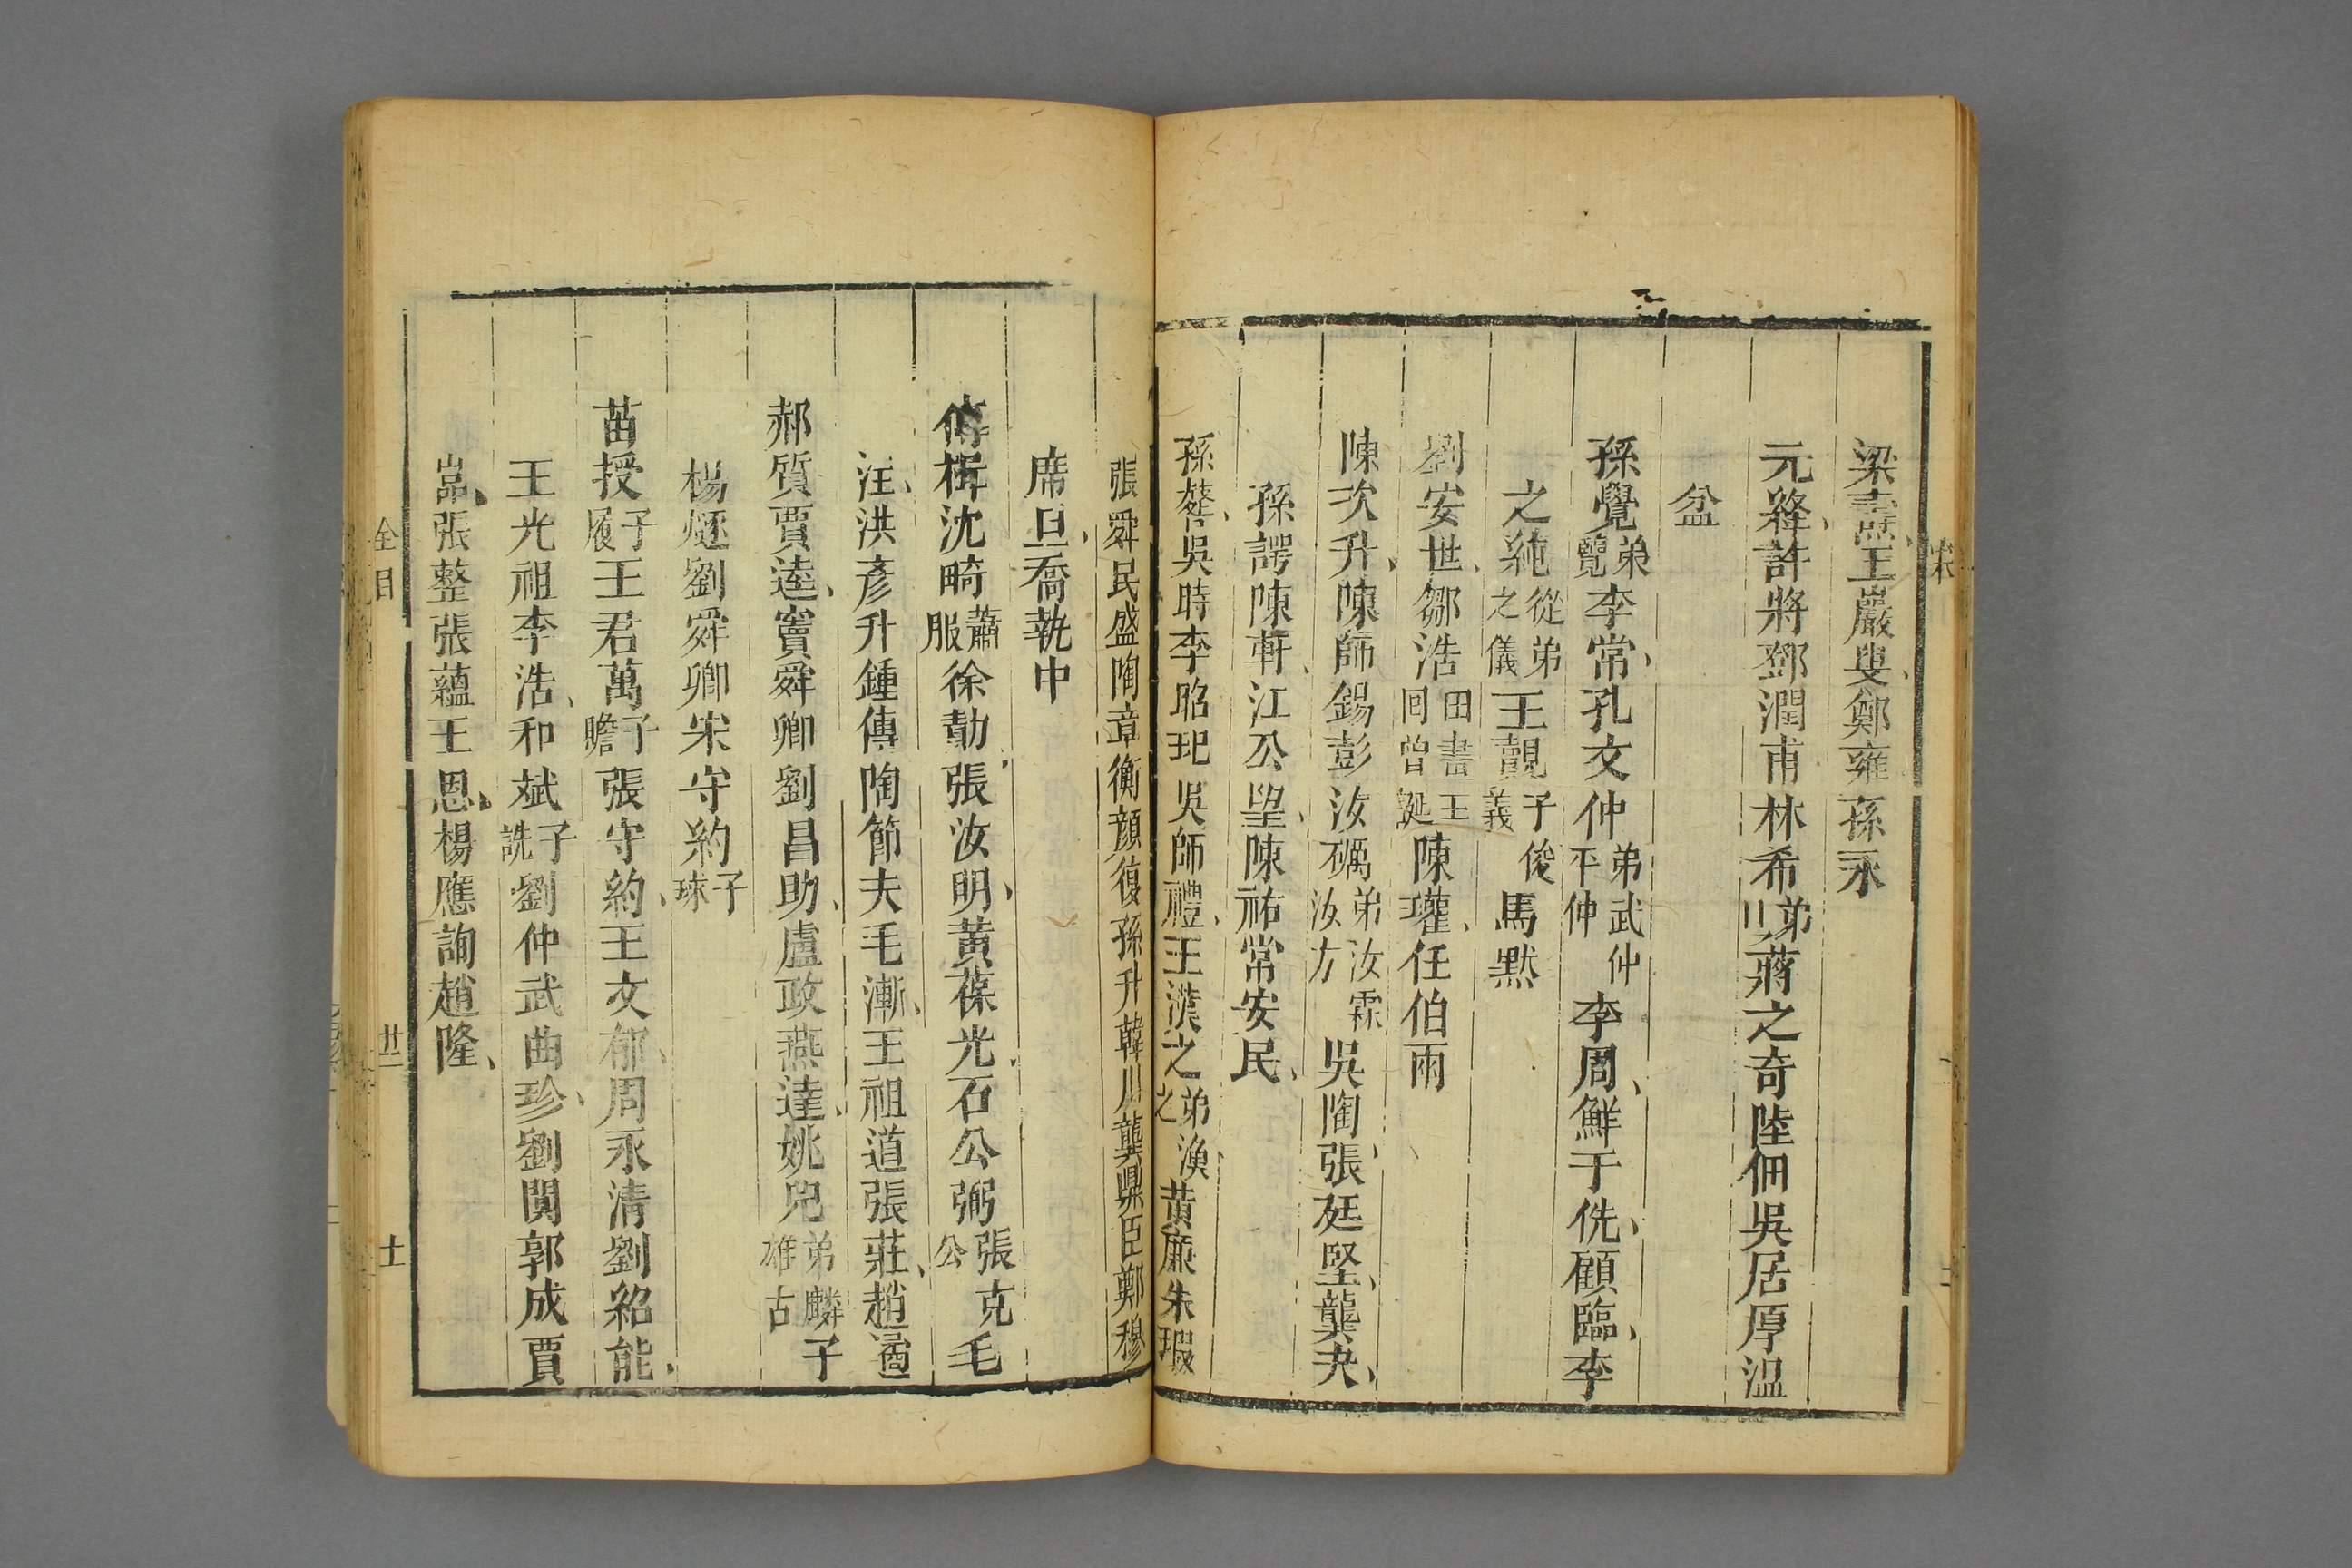 宋
梁燾王巖叟鄭雍孫永
元絳許將鄧潤甫林希弟旦蔣之奇陸佃吳居厚溫
益
孫覺弟覽李常孔文仲弟武仲平仲李周鮮于侁顧臨李
之純從弟之儀王覿子俊義馬默
劉安世鄒浩田晝王回曾誕陳瓘任伯雨
陳次升陳師錫彭汝礪弟汝霖汝方吳陶張廷堅龔夬
孫諤陳軒江公望陳祐常安民
孫鼛吳時李昭玘吳師禮王漢之弟渙之黃廉朱服
張舜民盛陶章衡顏復孫升韓川龔鼎臣鄭穆
席旦喬執中
傅楫沈畸蕭服徐勣張汝明黃葆光石公弼張克公毛
注洪彥升鍾傳陶節夫毛漸王祖道張莊趙遹
郝質賈逵竇舜卿劉昌助盧政燕達姚兕弟麟子雄古
楊燧劉舜卿宋守約子球
苗授子履王君萬子瞻張守約王文郁周永清劉紹能
王光祖李浩和斌子詵劉仲武曲珍劉闃郭成賈
嵓張整張蘊王恩楊應詢趙隆
全目
廿二
十